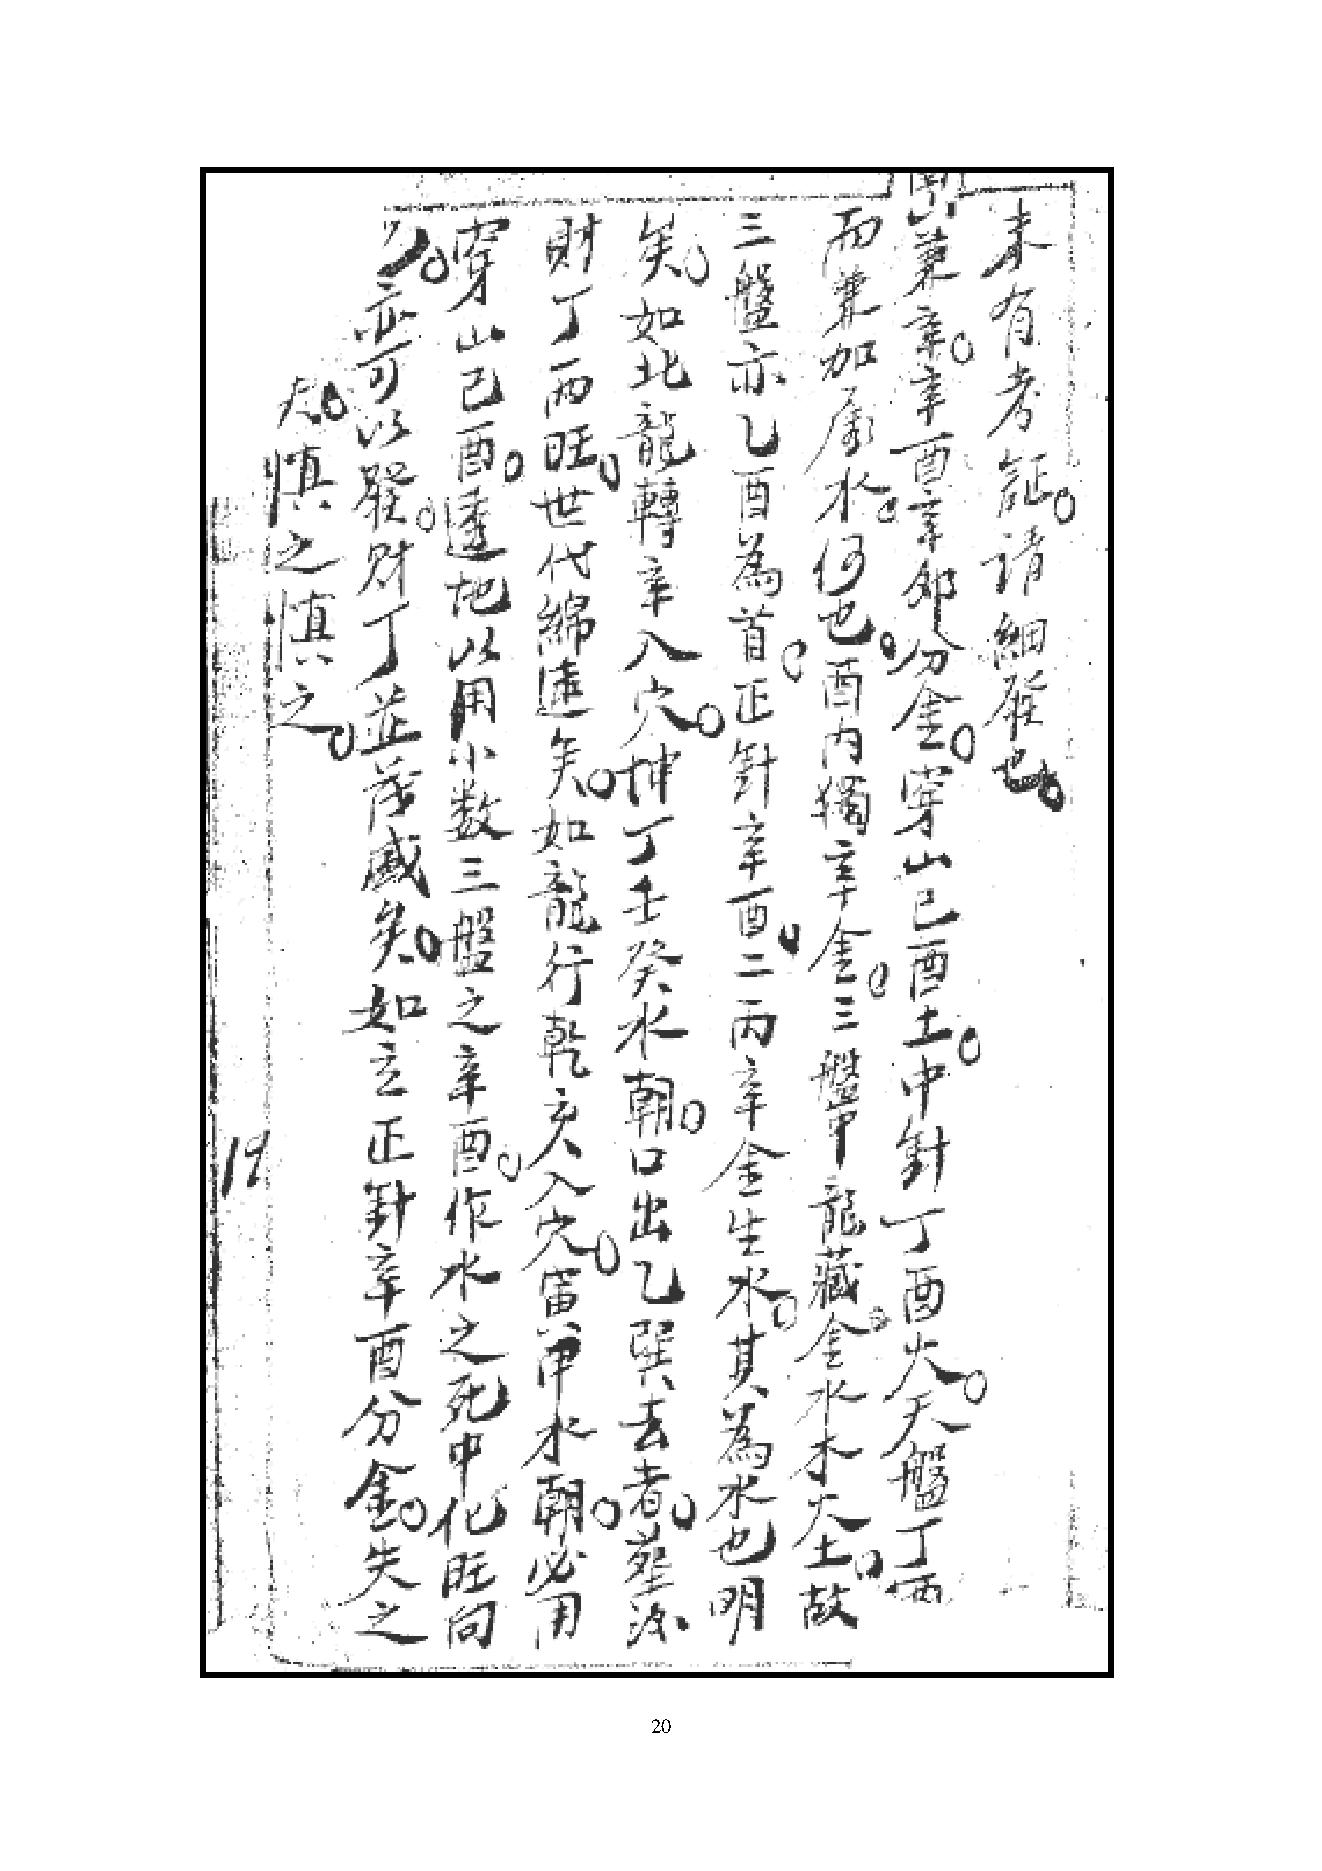 未有考証。請細發也。
兼辛。辛酉辛卯分金。穿山己酉土。中針丁酉火。天盤丁酉
而兼加屬水。何也。酉內獨辛金。三盤中龍藏。金水木火土。故
三盤亦乙酉為首。正針辛酉。二丙辛金生水。其為水也明
矣。如北龍轉辛入穴。坤丁壬癸水朝。口出乙巽去者。塋
財丁兩旺。世代綿遠矣。如龍行乾亥入穴。寅甲水朝。必用
穿山己酉。透地以用小数三盤之辛酉。作水之死中化旺向
。亦可以發。財丁並茂盛矣。如立正針辛酉分金。失之
矣。慎之慎之。
19
20